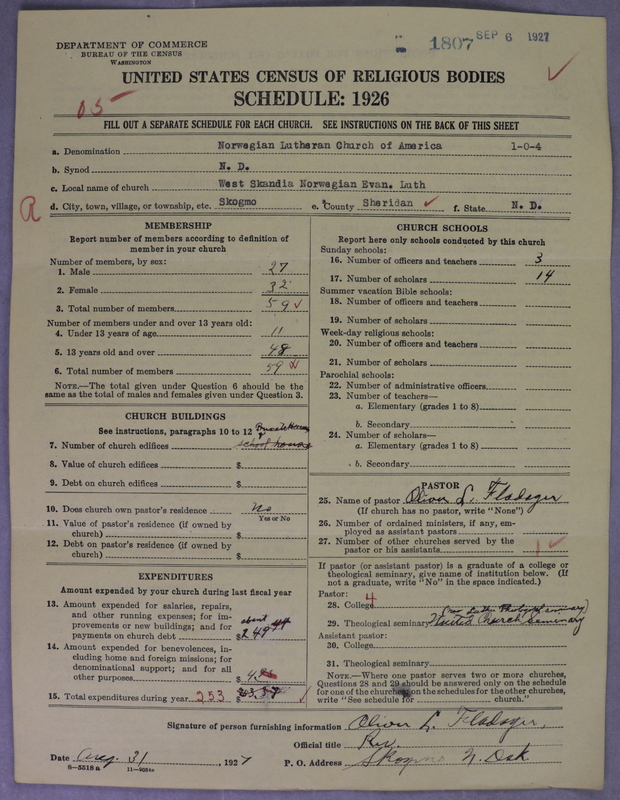 DEPARTMENT OF COMMERCE
BUREAU OF THE CENSUS
WASHINGTON
1807 SEP 6 1927
UNITED STATES CENSUS OF RELIGIOUS BODIES
SCHEDULE: 1926
05
FILL OUT A SEPARATE SCHEDULE FOR EACH CHURCH. SEE INSTRUCTIONS ON THE BACK OF THIS SHEET
a. Denomination Norwegian Lutheran Church of America 1-0-4
b. Synod N. D.
c. Local name of church West Skandia Norwegian Evan. Luth
R
d. City, town, village, or township, etc. Skogmo e. County Sheridan ✓ f. State N. D.
MEMBERSHIP
Report number of members according to definition of
member in your church
Number of members, by sex:
1. Male 27
2. Female 32
3. Total number of members 59
Number of members under and over 13 years old:
4. Under 13 years of age 11
5. 13 years old and over 48
6. Total number of members 59
NOTE.—The total given under Question 6 should be the
same as the total of males and females given under Question 3.
CHURCH BUILDINGS
See instructions, paragraphs 10 to 12
7. Number of church edifices school house
8. Value of church edifices $
9. Debt on church edifices $
10. Does church own pastor's residence No
Yes or No
11. Value of pastor's residence (if owned by
church) $
12. Debt on pastor's residence (if owned by
church) $
EXPENDITURES
Amount expended by your church during last fiscal year
13. Amount expended for salaries, repairs,
and other running expenses; for im-
provements or new buildings; and for
payments on church debt $ about 249
14. Amount expended for benevolences, in-
cluding home and foreign missions; for
denominational support; and for all
other purposes $ 4
15. Total expenditures during year 253 $
CHURCH SCHOOLS
Report here only schools conducted by this church
Sunday schools:
16. Number of officers and teachers 3
17. Number of scholars 14
Summer vacation Bible schools:
18. Number of officers and teachers
19. Number of scholars
Week-day religious schools:
20. Number of officers and teachers
21. Number of scholars
Parochial schools:
22. Number of administrative officers
23. Number of teachers—
a. Elementary (grades 1 to 8)
b. Secondary
24. Number of scholars—
a. Elementary (grades 1 to 8)
b. Secondary
PASTOR
25. Name of pastor Oliver L. Fladager
(If church has no pastor, write "None")
26. Number of ordained ministers, if any, em-
ployed as assistant pastors
27. Number of other churches served by the
pastor or his assistants 1 ✓
If pastor (or assistant pastor) is a graduate of a college or
theological seminary, give name of institution below. (If
not a graduate, write "No" in the space indicated.)
Pastor:
28. College 4
29. Theological seminary United Church Seminary
Assistant pastor:
30. College
31. Theological seminary
NOTE.—Where one pastor serves two or more churches,
Questions 28 and 29 should be answered only on the schedule
for one of the churches; on the schedules for the other churches,
write "See schedule for church."
Signature of person furnishing information Oliver L. Fladager,
Official title Rev.
Date Aug. 31, 1927 P. O. Address Skogmo N. Dak
8—5518a 11—9054a